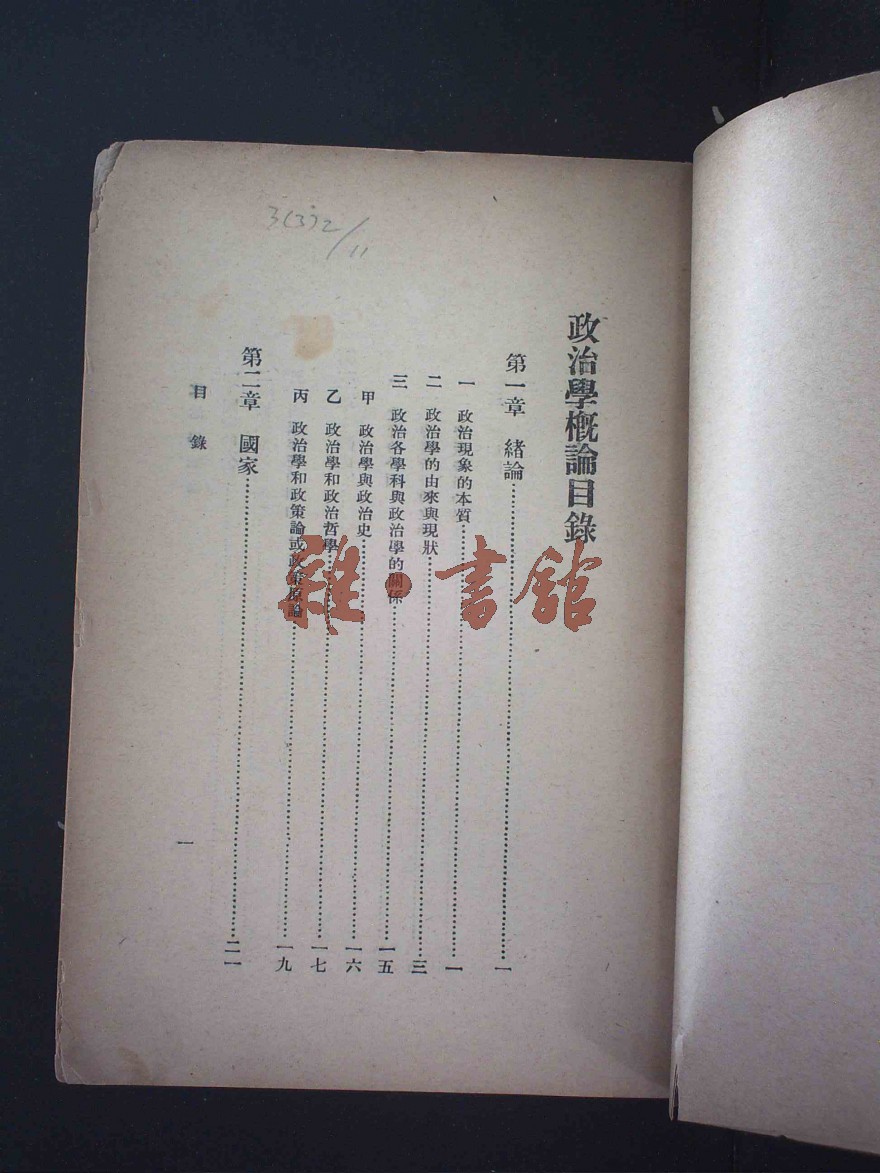 政治學概論目錄
第一章 緒論……一
一 政治現象的本質……一
二 政治學的由來與現狀……三
三 政治各學科與政治學的關係……一五
甲 政治學與政治史……一六
乙 政治學和政治哲學……一七
丙 政治學和政策論或政策原論……一九
第二章 國家……二一
目錄
一
3(3)2/11
雜·書館